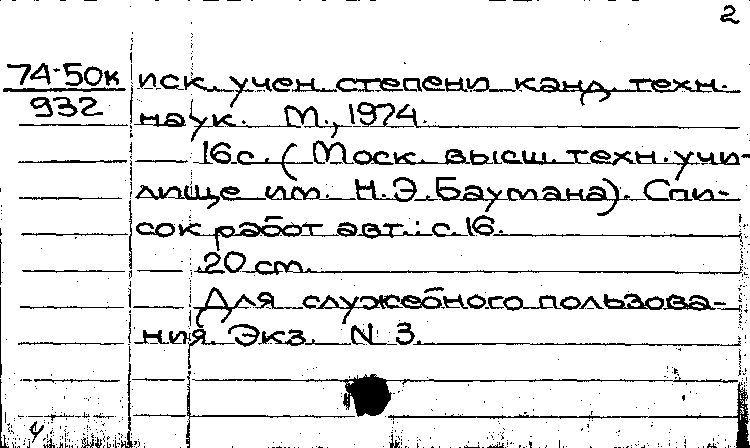 2
74-50к иск. учен. степени канд. техн.
932 наук. М., 1974.
16 с. (Моск. высш. техн. учи-
лище им. Н.Э.Баумана). Спи-
сок работ авт.: с. 16.
20 см.
Для служебного пользова-
ния. Экз. N 3.
4